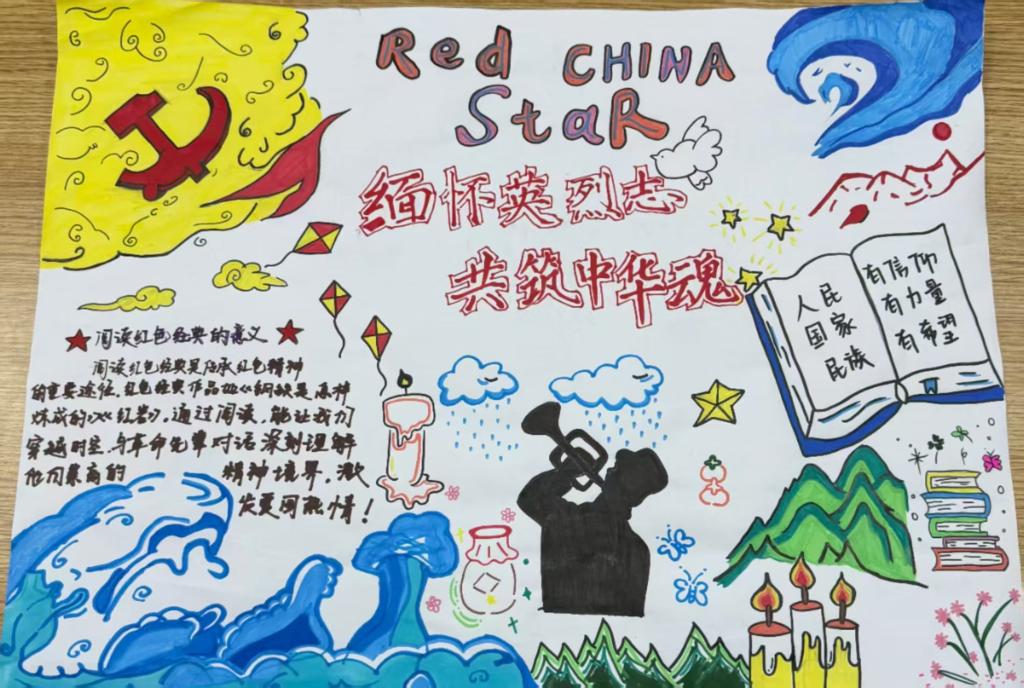 Red CHINA
StaR
缅怀英烈志
共筑中华魂
人民
国家
民族
有信仰
有力量
有希望
阅读红色经典的意义
阅读红色经典是传承红色精神
的重要途径，红色经典作品如《钢铁是怎样
炼成的》《红岩》，通过阅读，能让我们
穿越时空，与革命先辈对话深刻理解
他们崇高的 精神境界，激
发爱国热情！